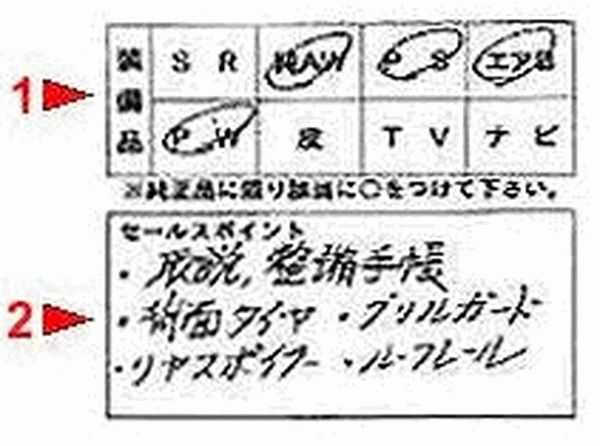 1
装備品
SR 純AW PS エアB
PW 皮 TV ナビ
※純正品に限り該当に○をつけて下さい。
2
セールスポイント
・取説, 整備手帳
・背面タイヤ ・グリルガード
・リヤスポイラー ・ルーフレール